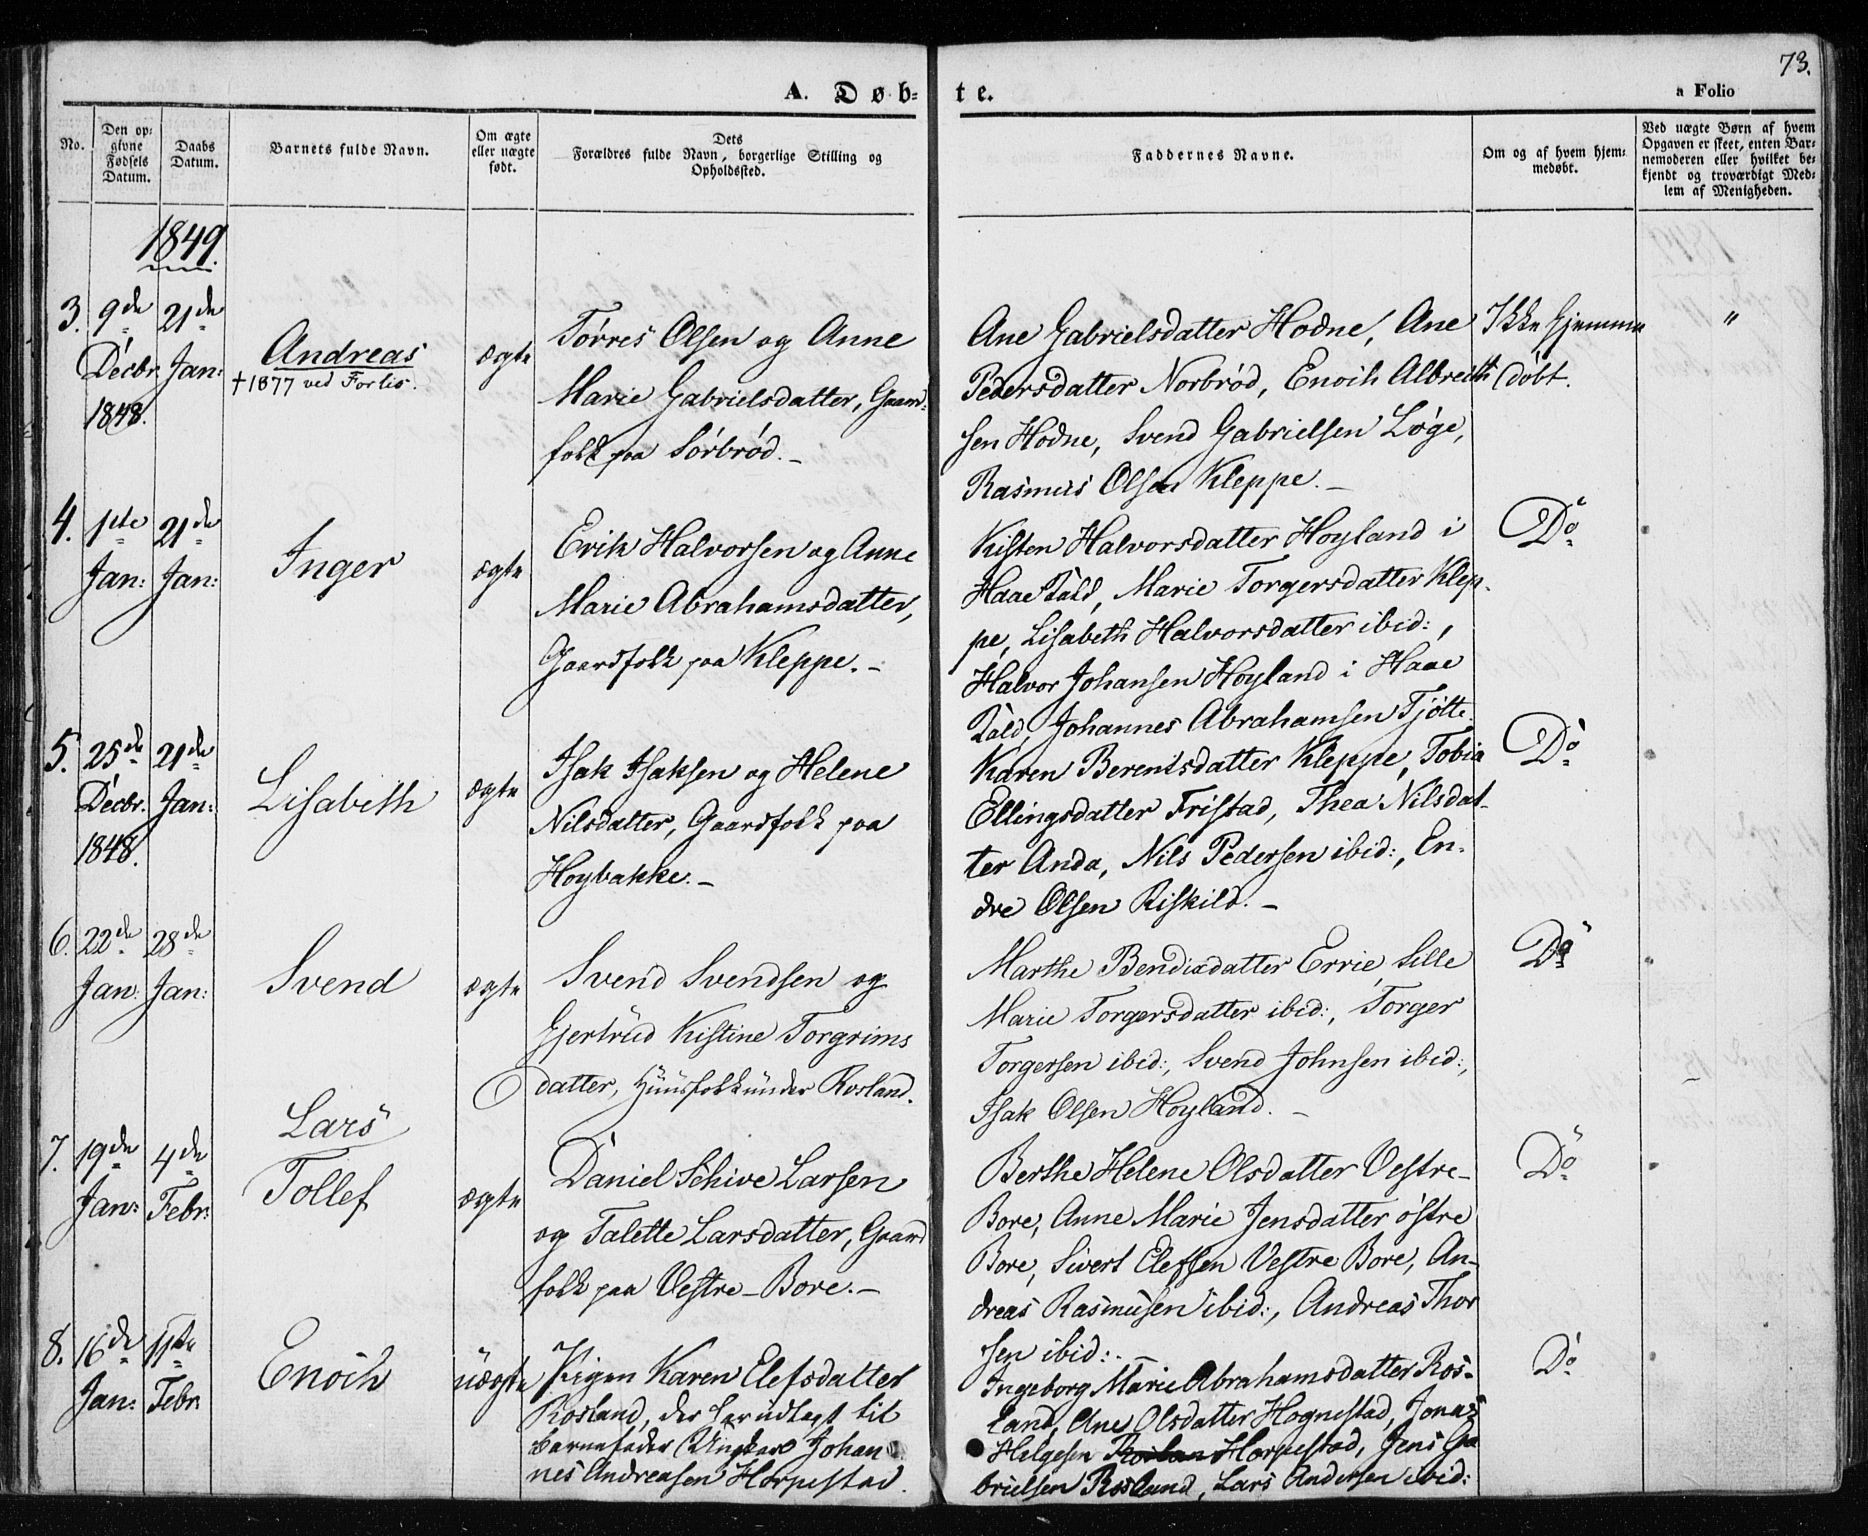 73.
A. Døb=te.
a Folio
No.
Den op=
givne
Fødsels
Datum.
Daabs
Datum.
Barnets fulde Navn.
Om ægte
eller uægte
født.
Dets
Forældres fulde Navn, borgerlige Stilling og
Opholdssted.
Faddernes Navne.
Om og af hvem hjem=
medøbt.
Ved uægte Børn af hvem
Opgaven er skeet, enten Bar=
nemoderen eller hvilket be=
kjendt og troværdigt Med=
lem af Menigheden.
1849.
3.
9de
Decbr.
1848.
21de
Jan:
Andreas
† 1877 ved Forlis.
ægte
Tørres Olsen og Anne
Marie Gabrielsdatter, Gaard-
folk paa Sørbrød. –
Ane Gabrielsdatter Hodne, Ane
Pedersdatter Norbrød, Enoch Albrecth
sen Hodne, Svend Gabrielsen Løge,
Rasmus Olsen Kleppe. –
Ikke hjemme
døbt.
"
4.
1ste
Jan:
21de
Jan:
Inger
ægte
Erik Halvorsen og Anne
Marie Abrahamsdatter,
Gaardfolk paa Kleppe. –
Kisten Halvorsdatter Hoyland i
Haae Gield, Marie Torgersdatter Klep-
pe, Lisabeth Halvorsdatter ibid:,
Halvor Johansen Hoyland i Haae
Gield, Johannes Abrahamsen Tjøtte.
Do
5.
25de
Decbr.
1848.
21de
Jan:
Lisabeth
ægte
Isak Isaksen og Helene
Nilsdatter, Gaardfolk paa
Hoybakke. –
Karen Berentsdatter Kleppe, Tobia
Ellingsdatter Fristad, Thea Nilsdat-
ter Anda, Nils Pedersen ibid:, En-
dre Olsen Riskild. –
Do
6.
22de
Jan:
28de
Jan:
Svend
ægte
Svend Svendsen og
Gjertrud Kistine Torgrims
datter, Huusfolk under Rosland.
Marthe Bendixdatter Errie, Sille
Marie Torgersdatter ibid:, Torger
Torgersen ibid:, Svend Johnsen ibid:,
Isak Olsen Hoyland. –
Do
7.
19de
Jan:
4de
Febr:
Lars
Tollef
ægte
Daniel Schive Larsen
og Talette Larsdatter, Gaard
folk paa Vestre-Bore. –
Berthe Helene Olsdatter Vestre-
Bore, Anne Marie Jensdatter østre
Bore, Sivert Elefsen Vestre Bore, An-
dreas Rasmusen ibid:, Andreas Thor
sen ibid:. –
Do
8.
16de
Jan:
11te
Febr:
Enoch
uægte
Pigen Karen Elefsdatter
Rosland, der har udlagt til
barnefader Ungkarl Johan
nes Andreasen Horpestad.
Ingeborg Marie Abrahamsdatter Ros-
land, Ane Olsdatter Hognestad, Jonas
Helgesen Horpestad, Jens Ga
brielsen Rosland, Lars Andersen ibid:
Do